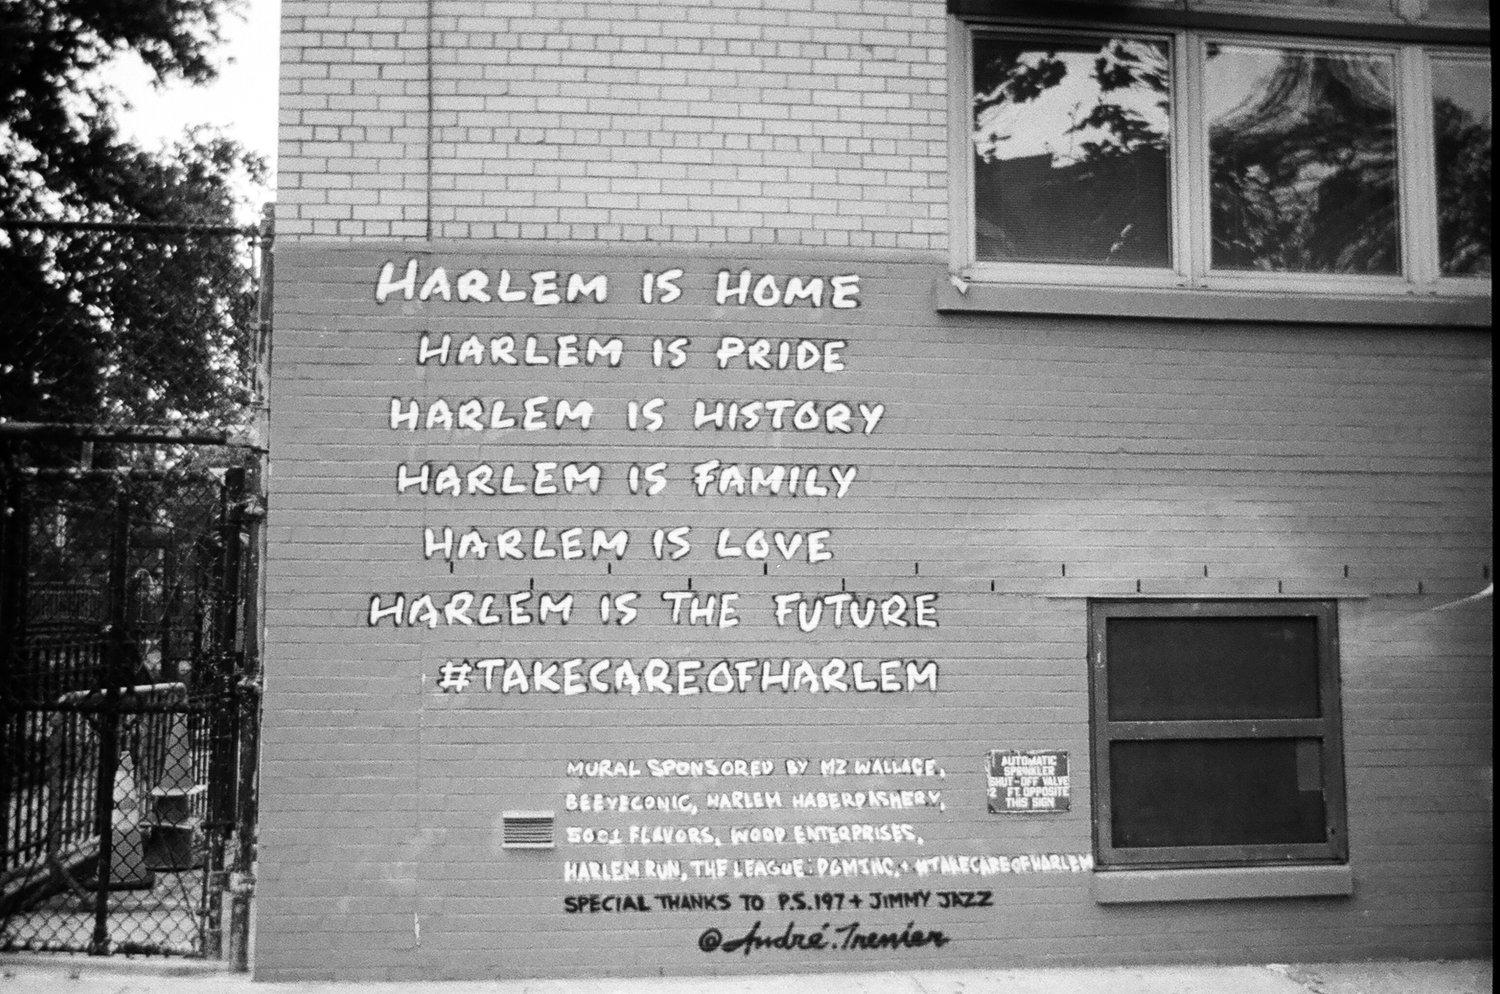 HARLEM IS HOME
HARLEM IS PRIDE
HARLEM IS HISTORY
HARLEM IS FAMILY
HARLEM IS LOVE
HARLEM IS THE FUTURE
#TAKECAREOFHARLEM
MURAL SPONSORED BY MZ WALLACE,
BEEYECONIC, HARLEM HABERDASHERY,
5001 FLAVORS, WOOD ENTERPRISES,
HARLEM RUN, THE LEAGUE: DGMINC, + #TAKECAREOFHARLEM
SPECIAL THANKS TO P.S.197 + JIMMY JAZZ
@André.Trenier
AUTOMATIC
SPRINKLER
SHUT-OFF VALVE
2 FT. OPPOSITE
THIS SIGN